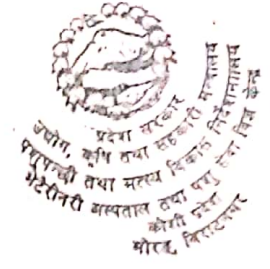 प्रदेश सरकार
उद्योग, कृषि तथा सहकारी मन्त्रालय
पशुपन्छी तथा मत्स्य विकास निर्देशनालय
भेटेरीनरी अस्पताल तथा पशु सेवा विज्ञ केन्द्र
कोशी प्रदेश
मोरङ, विराटनगर